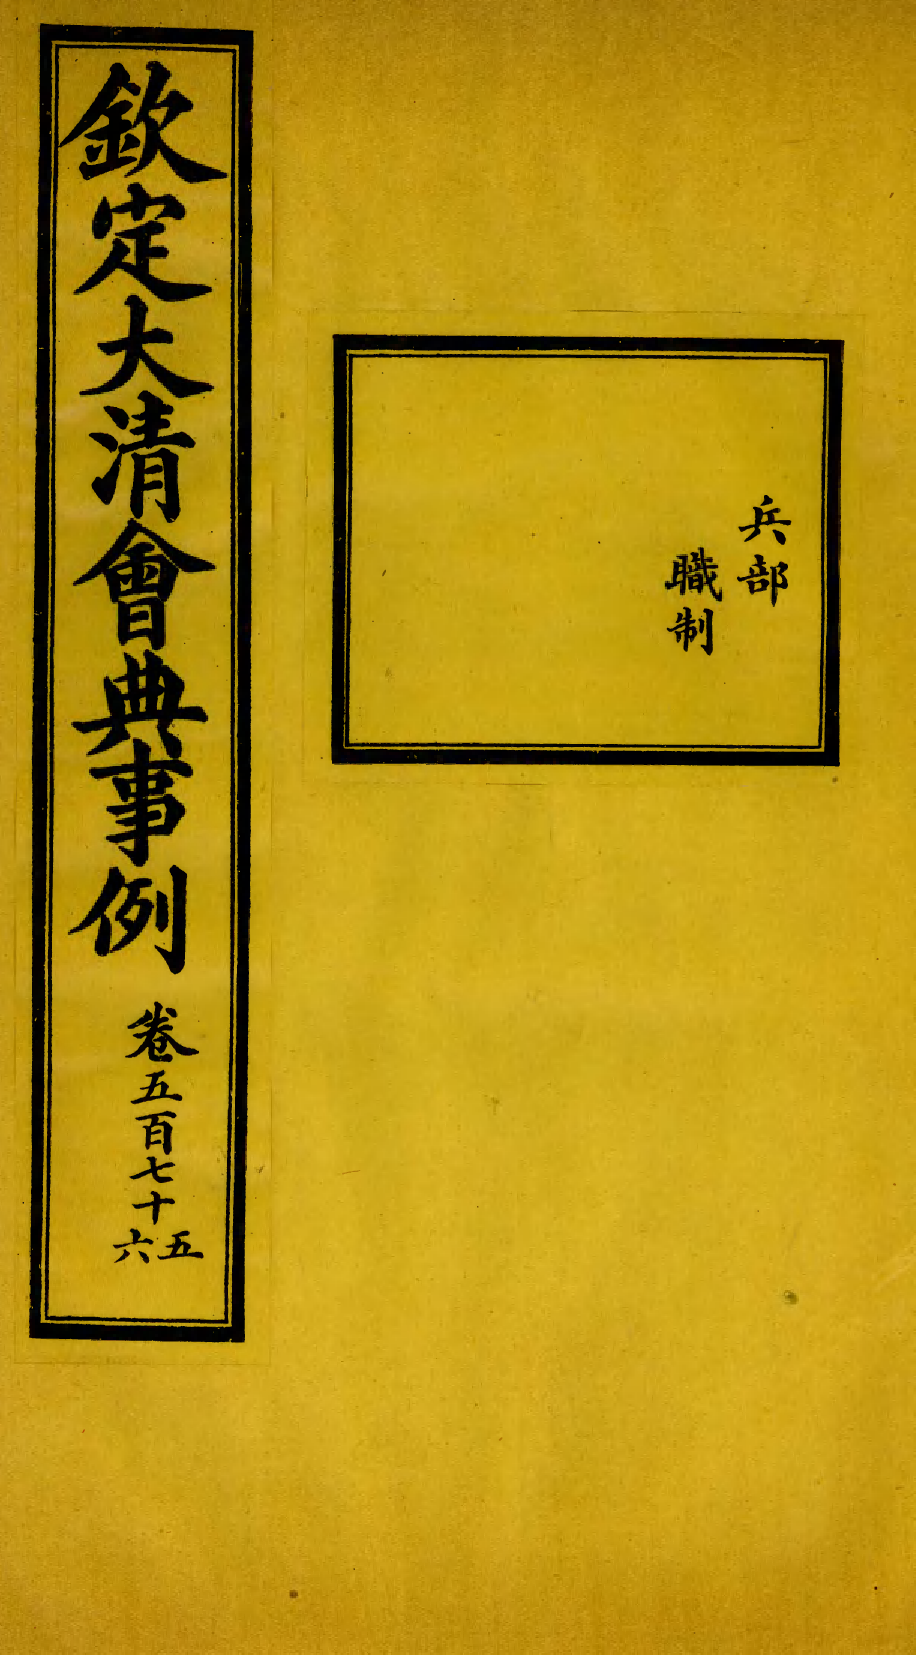 兵部
職制
欽定大清會典事例
卷五百七十五六